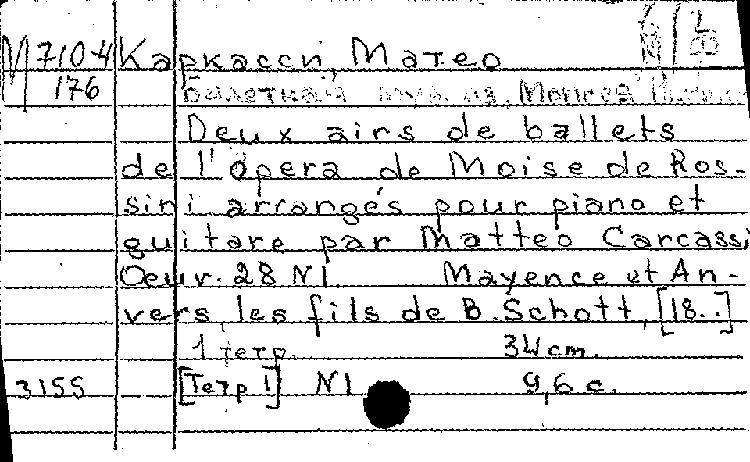 М 710-4 Каркасси, Матео
176 Балетная муз. из
Deux airs de ballets
de l'opera de Moise de Ros-
sini arrangés pour piano et
guitare par Matteo Carcassi
Oeuv. 28 N1. Mayence et An-
vers, les fils de B. Schott, [18..]
1 тетр. 34 cm.
3155 [Тетр 1] N1 9,6 c.